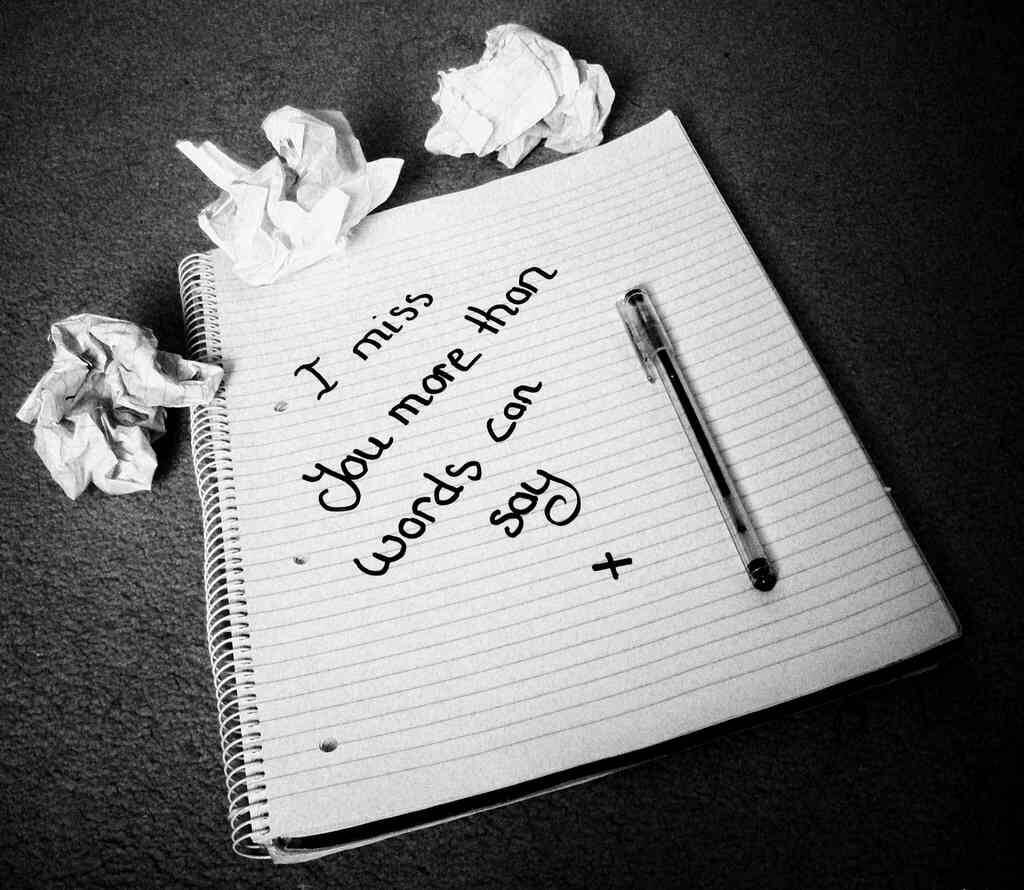 I miss
you more than
words can
say
+